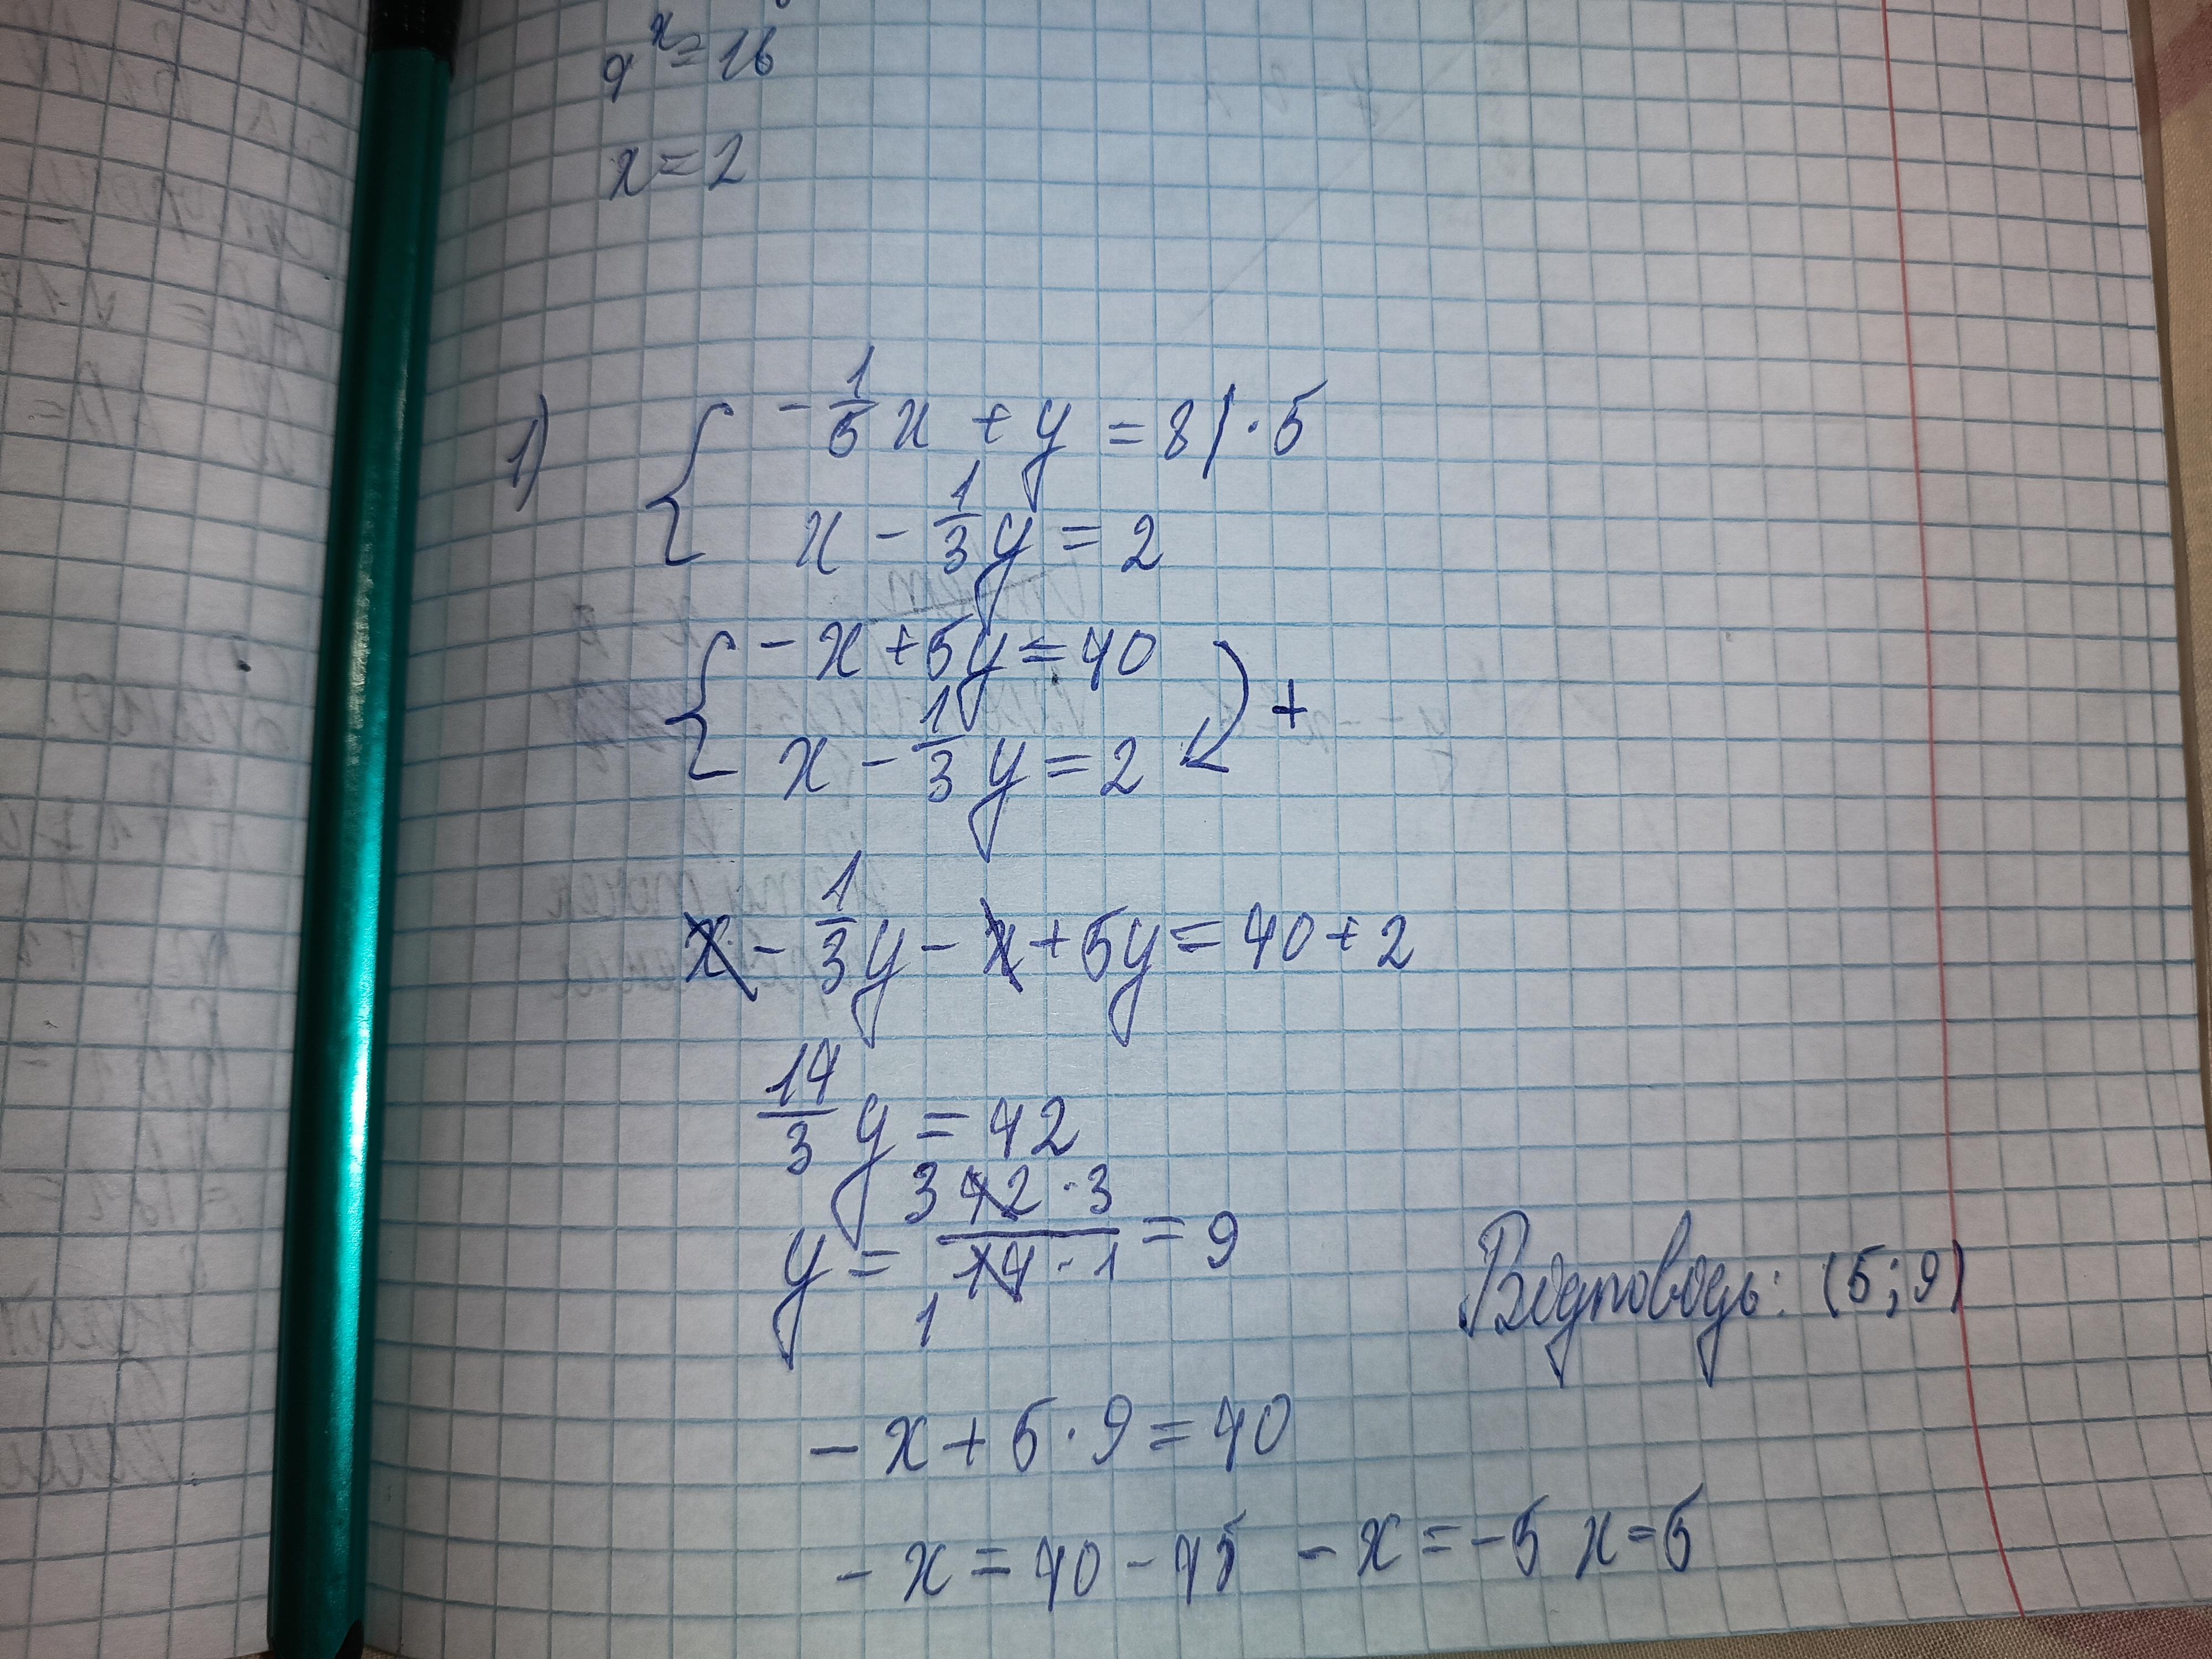 4ˣ = 16
x = 2
1) { -1/5 x + y = 8 / · 5
x - 1/3 y = 2
{ -x + 5y = 40
x - 1/3 y = 2 +
x - 1/3 y - x + 5y = 40 + 2
14/3 y = 42
y = 3 42 · 3 / 14 · 1 1 = 9
Відповідь: (5; 9)
-x + 5 · 9 = 40
-x = 40 - 45 -x = -5 x = 5